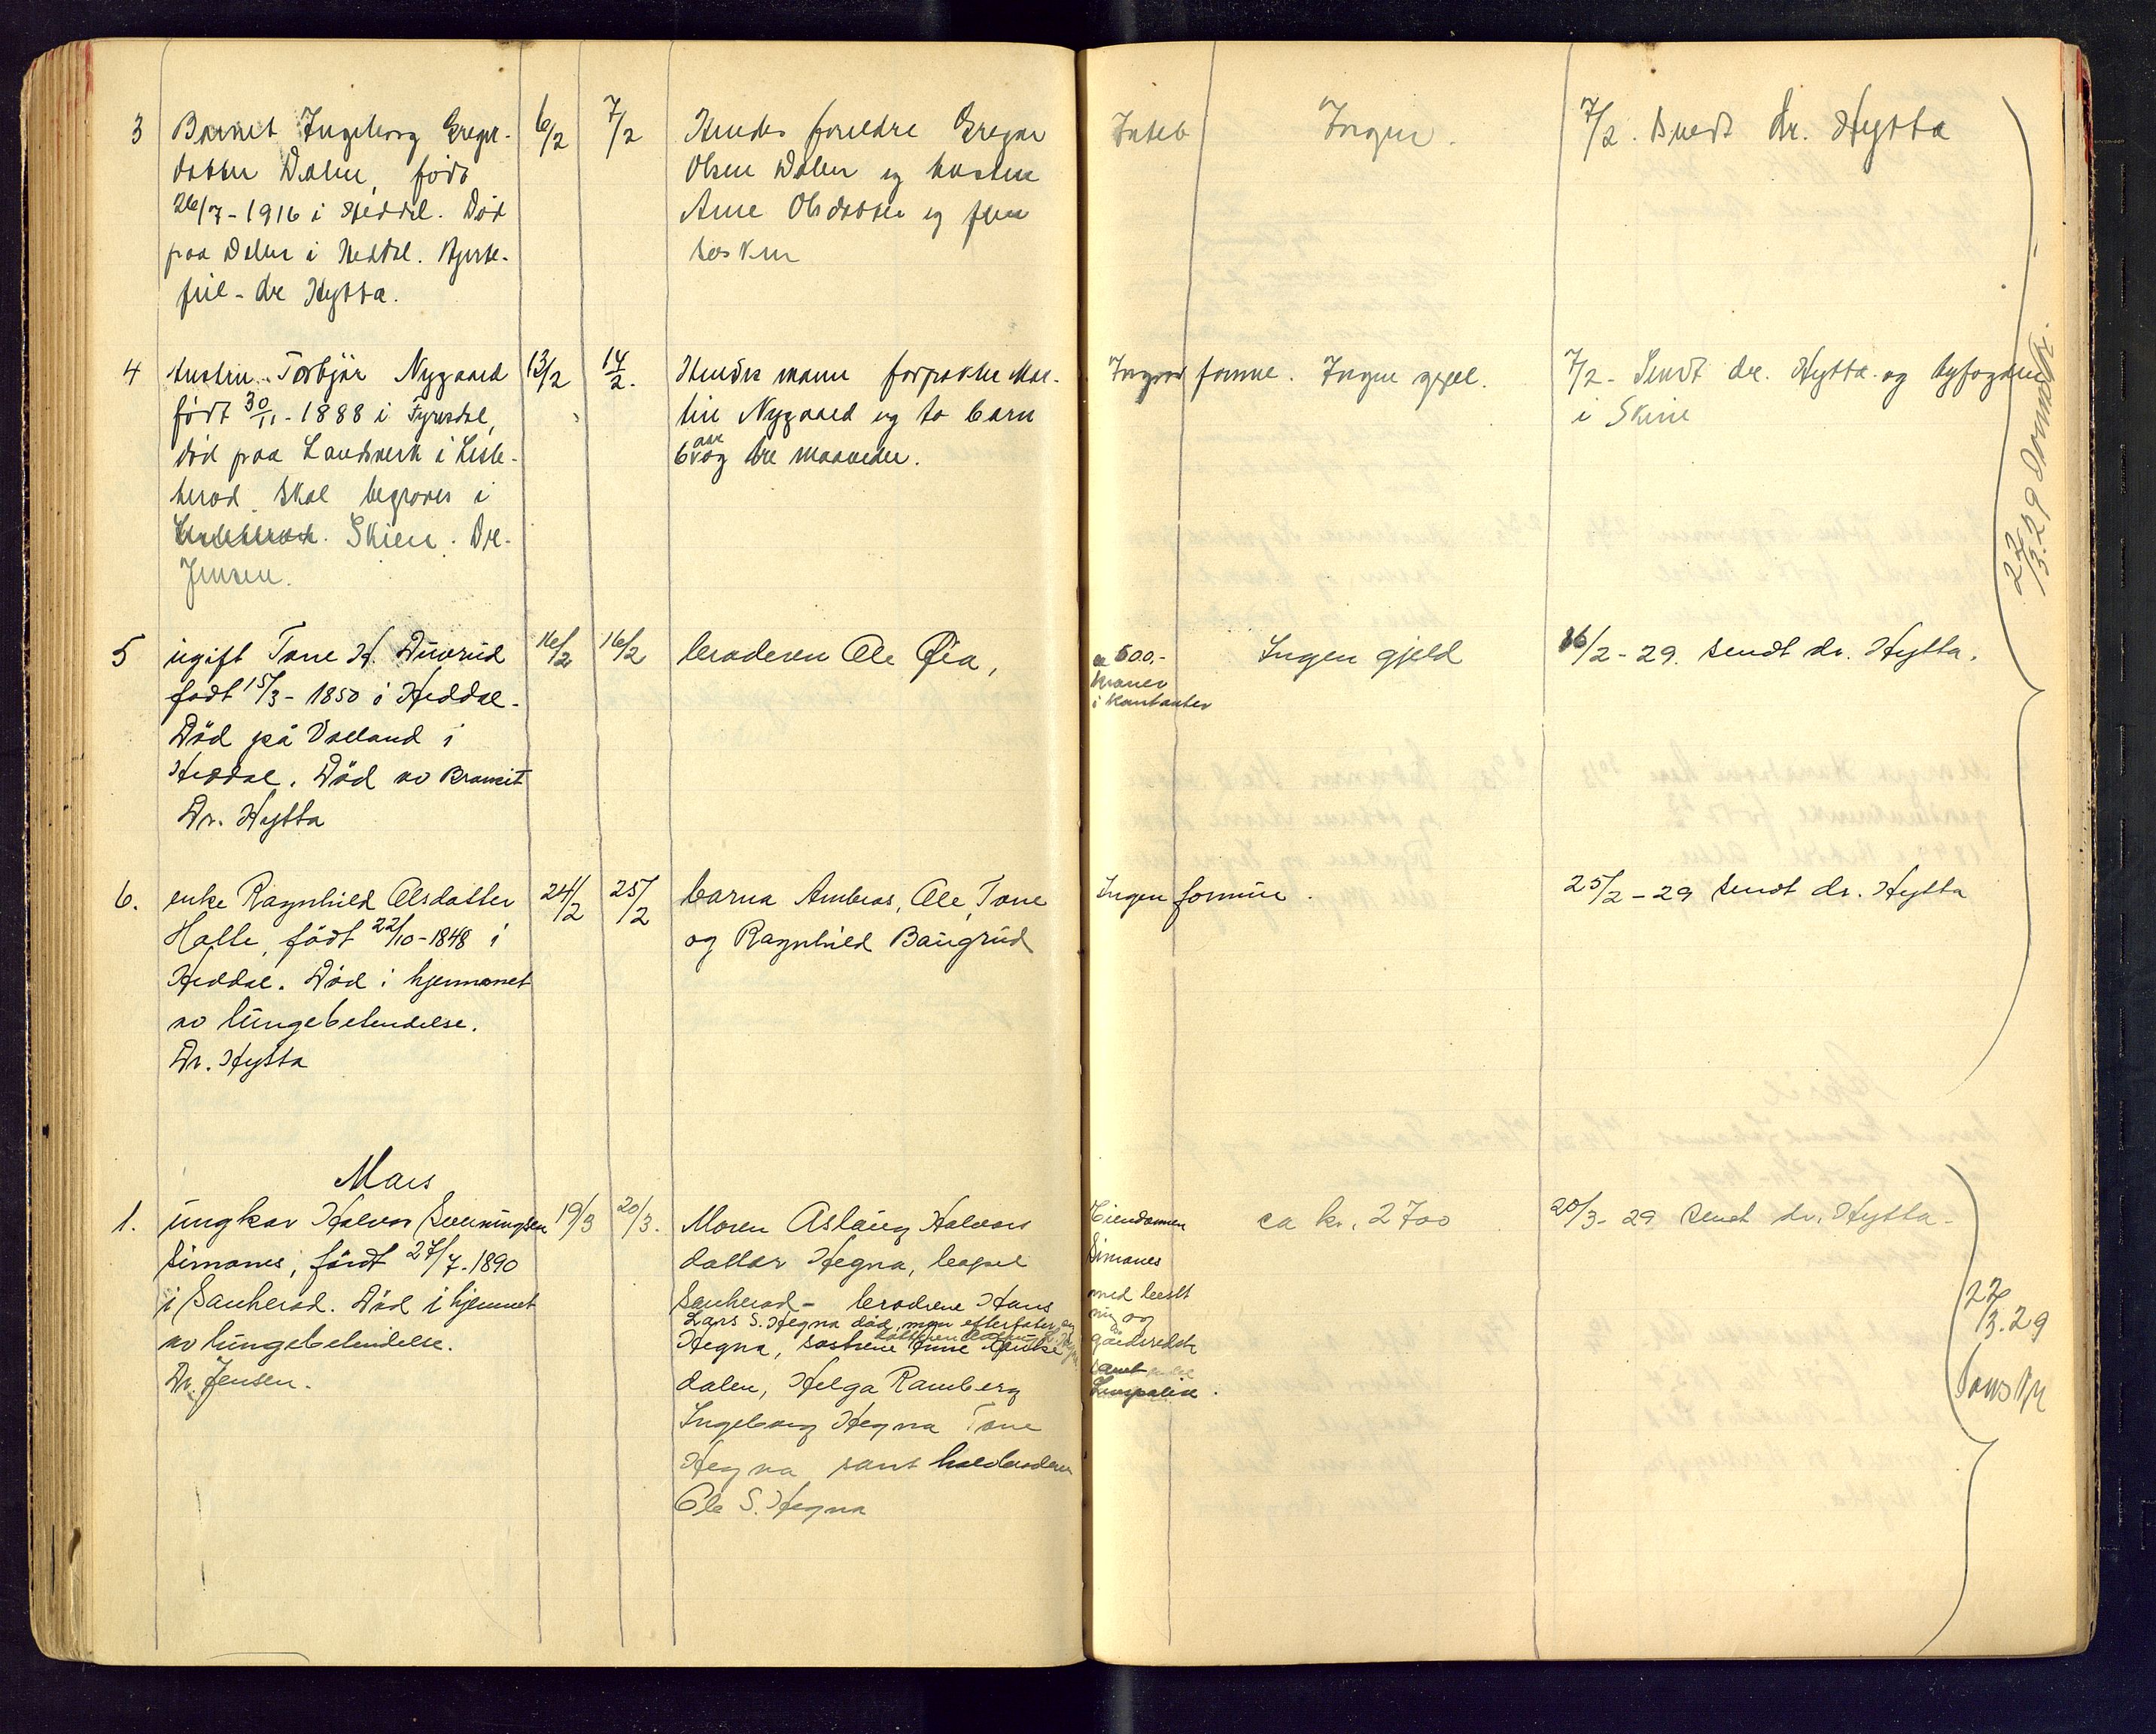 3 Barnet Ingeborg Gregar-
datter Dalen, født
26/7-1916 i Heddal. Død
paa Dalen i Heddal. Hjerte-
feil - dr Hytta.
6/2
7/2
Hendes foreldre Gregar
Olsen Dalen og hustru
Anne Olsdatter og fem
søsken
Intet
Ingen.
7/2. Sendt dr. Hytta
4 hustru Torbjør Nygaard
født 30/11-1888 i Fyresdal,
død paa Landsverk i Lisle-
herad. Skal begraves i
Skien. Dr.
Jensen.
13/2
14/2.
Hendes mann forpakter Mar-
tin Nygaard og to barn
6 aar og tre maaneder.
Ingen formue. Ingen gjæl.
7/2 - Sendt dr. Hytta og byfogden
i Skien
5 ugift Tone H. Duvrud
født 15/3-1850 i Heddal.
Død på Valland i
Heddal. Død av Bronkit
Dr. Hytta
16/2
16/2
broderen Ole Øia,
ca 600,-
kroner
i kontanter
Ingen gjeld
16/2-29. sendt dr. Hytta.
6. enke Ragnhild Olsdatter
Halle, født 22/10-1848 i
Heddal. Død i hjemmet
av lungebetendelse.
Dr. Hytta
24/2
25/2
barna Ambros, Ole, Tone
og Ragnhild Baugrud
Ingen formue.
25/2-29 sendt dr. Hytta
22/3.29
Mars
1. ungkar Halvor Sveinungsen
Simones, født 27/7.1890
i Sauherad. Død i hjemmet
av lungebetendelse.
Dr. Jensen.
19/3
20/3.
Moren Aslaug Halvors
datter Hegna, bopæl
Sauherad - brødrene Hans
Lars S. Hegna død, men efterlater en
datteren
Hegna, søstrene Anne
dalen, Helga Ramberg
Ingeborg Hegna Tone
Hegna samt halvbroderen
Ole S. Hegna
Eiendommen
Simones
med besæt
ning og
gårdsredsk
samt
ca kr. 2700
20/3-29 sendt dr. Hytta.
27/3.29